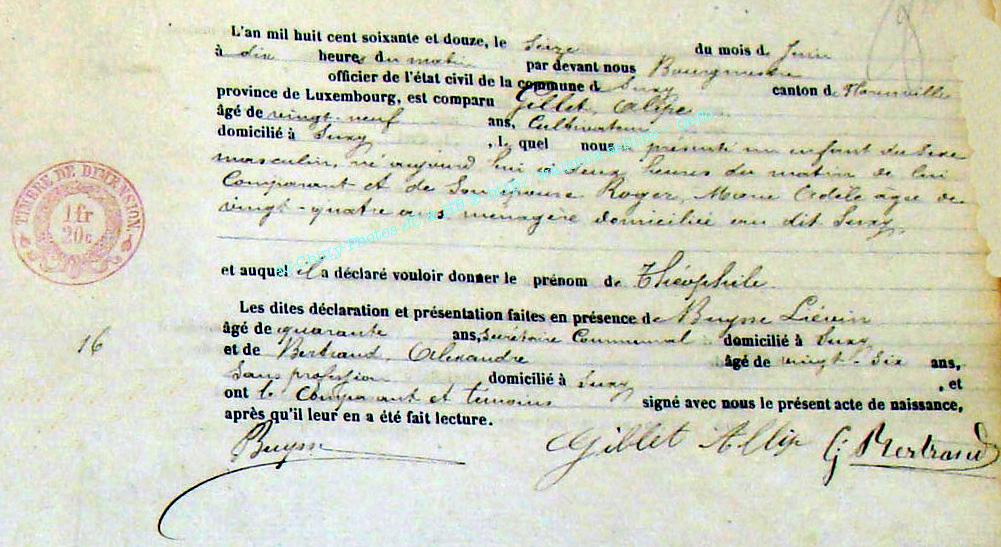 L'an mil huit cent soixante et douze, le Seize du mois de Juin
à dix heures du matin par devant nous Bourgmestre
officier de l'état civil de la commune de Suxy canton de Florenville
province de Luxembourg, est comparu Gillet, Alipe
âgé de vingt-neuf ans, Cultivateur
domicilié à Suxy, lequel nous a présenté un enfant du Sexe
masculin, né aujourd'hui à deux heures du matin de lui
Comparant et de Son épouse Roger, Marie Adèle âgée de
vingt-quatre ans ménagère domiciliée au dit Suxy.
TIMBRE DE DIMENSION.
1 fr
20 c
et auquel il a déclaré vouloir donner le prénom de Théophile
Les dites déclaration et présentation faites en présence de Buysse Liévin
16
âgé de quarante ans, Secrétaire Communal domicilié à Suxy
et de Bertrand, Alexandre âgé de vingt-Six ans,
Sans profession domicilié à Suxy, et
ont le Comparant et temoins signé avec nous le présent acte de naissance,
après qu'il leur en a été fait lecture.
Buysse Gillet Allip Bertrand